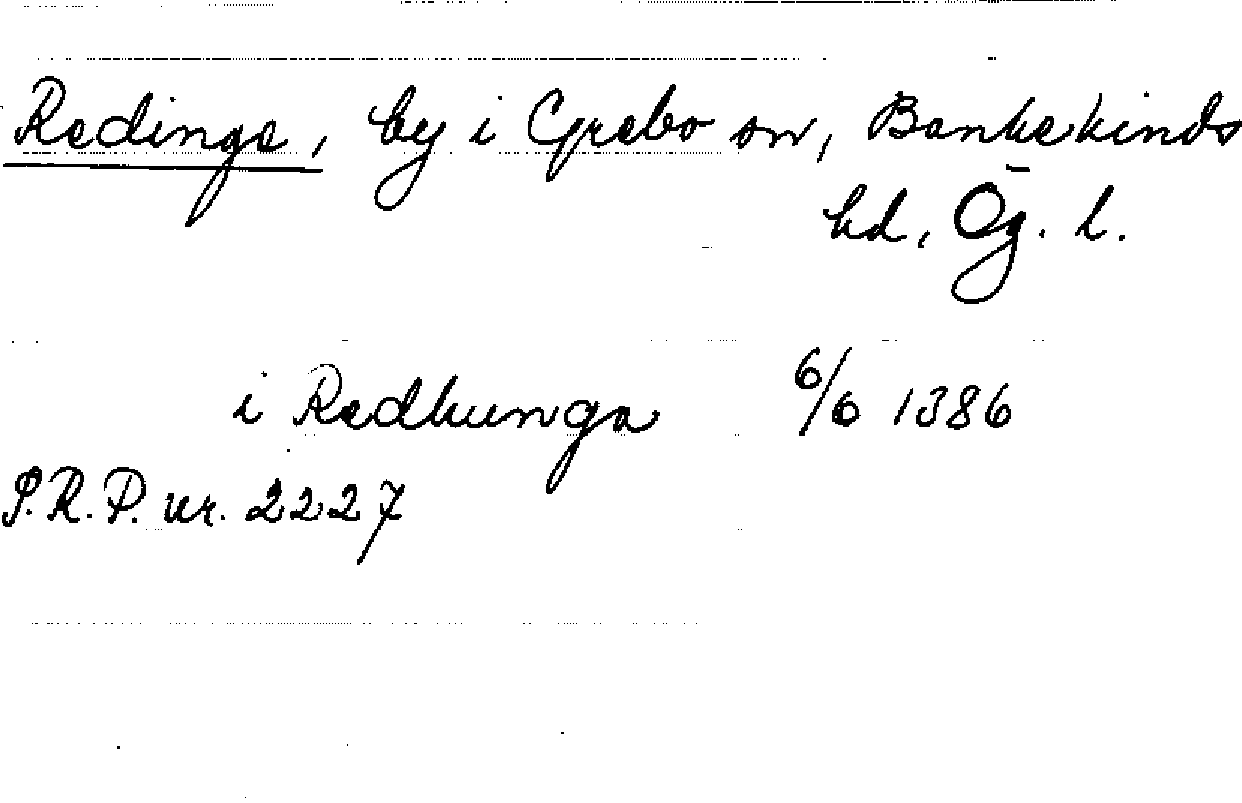 Redinge, by i Grebo sn, Bankekinds
hd, Ög. l.
i Redhunga 6/6 1386
S.R.P. nr. 2227